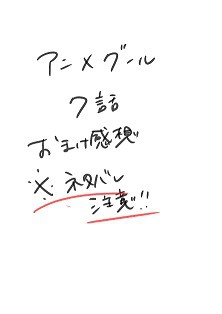 アニメグール
7話
おまけ感想
※ネタバレ
注意!!